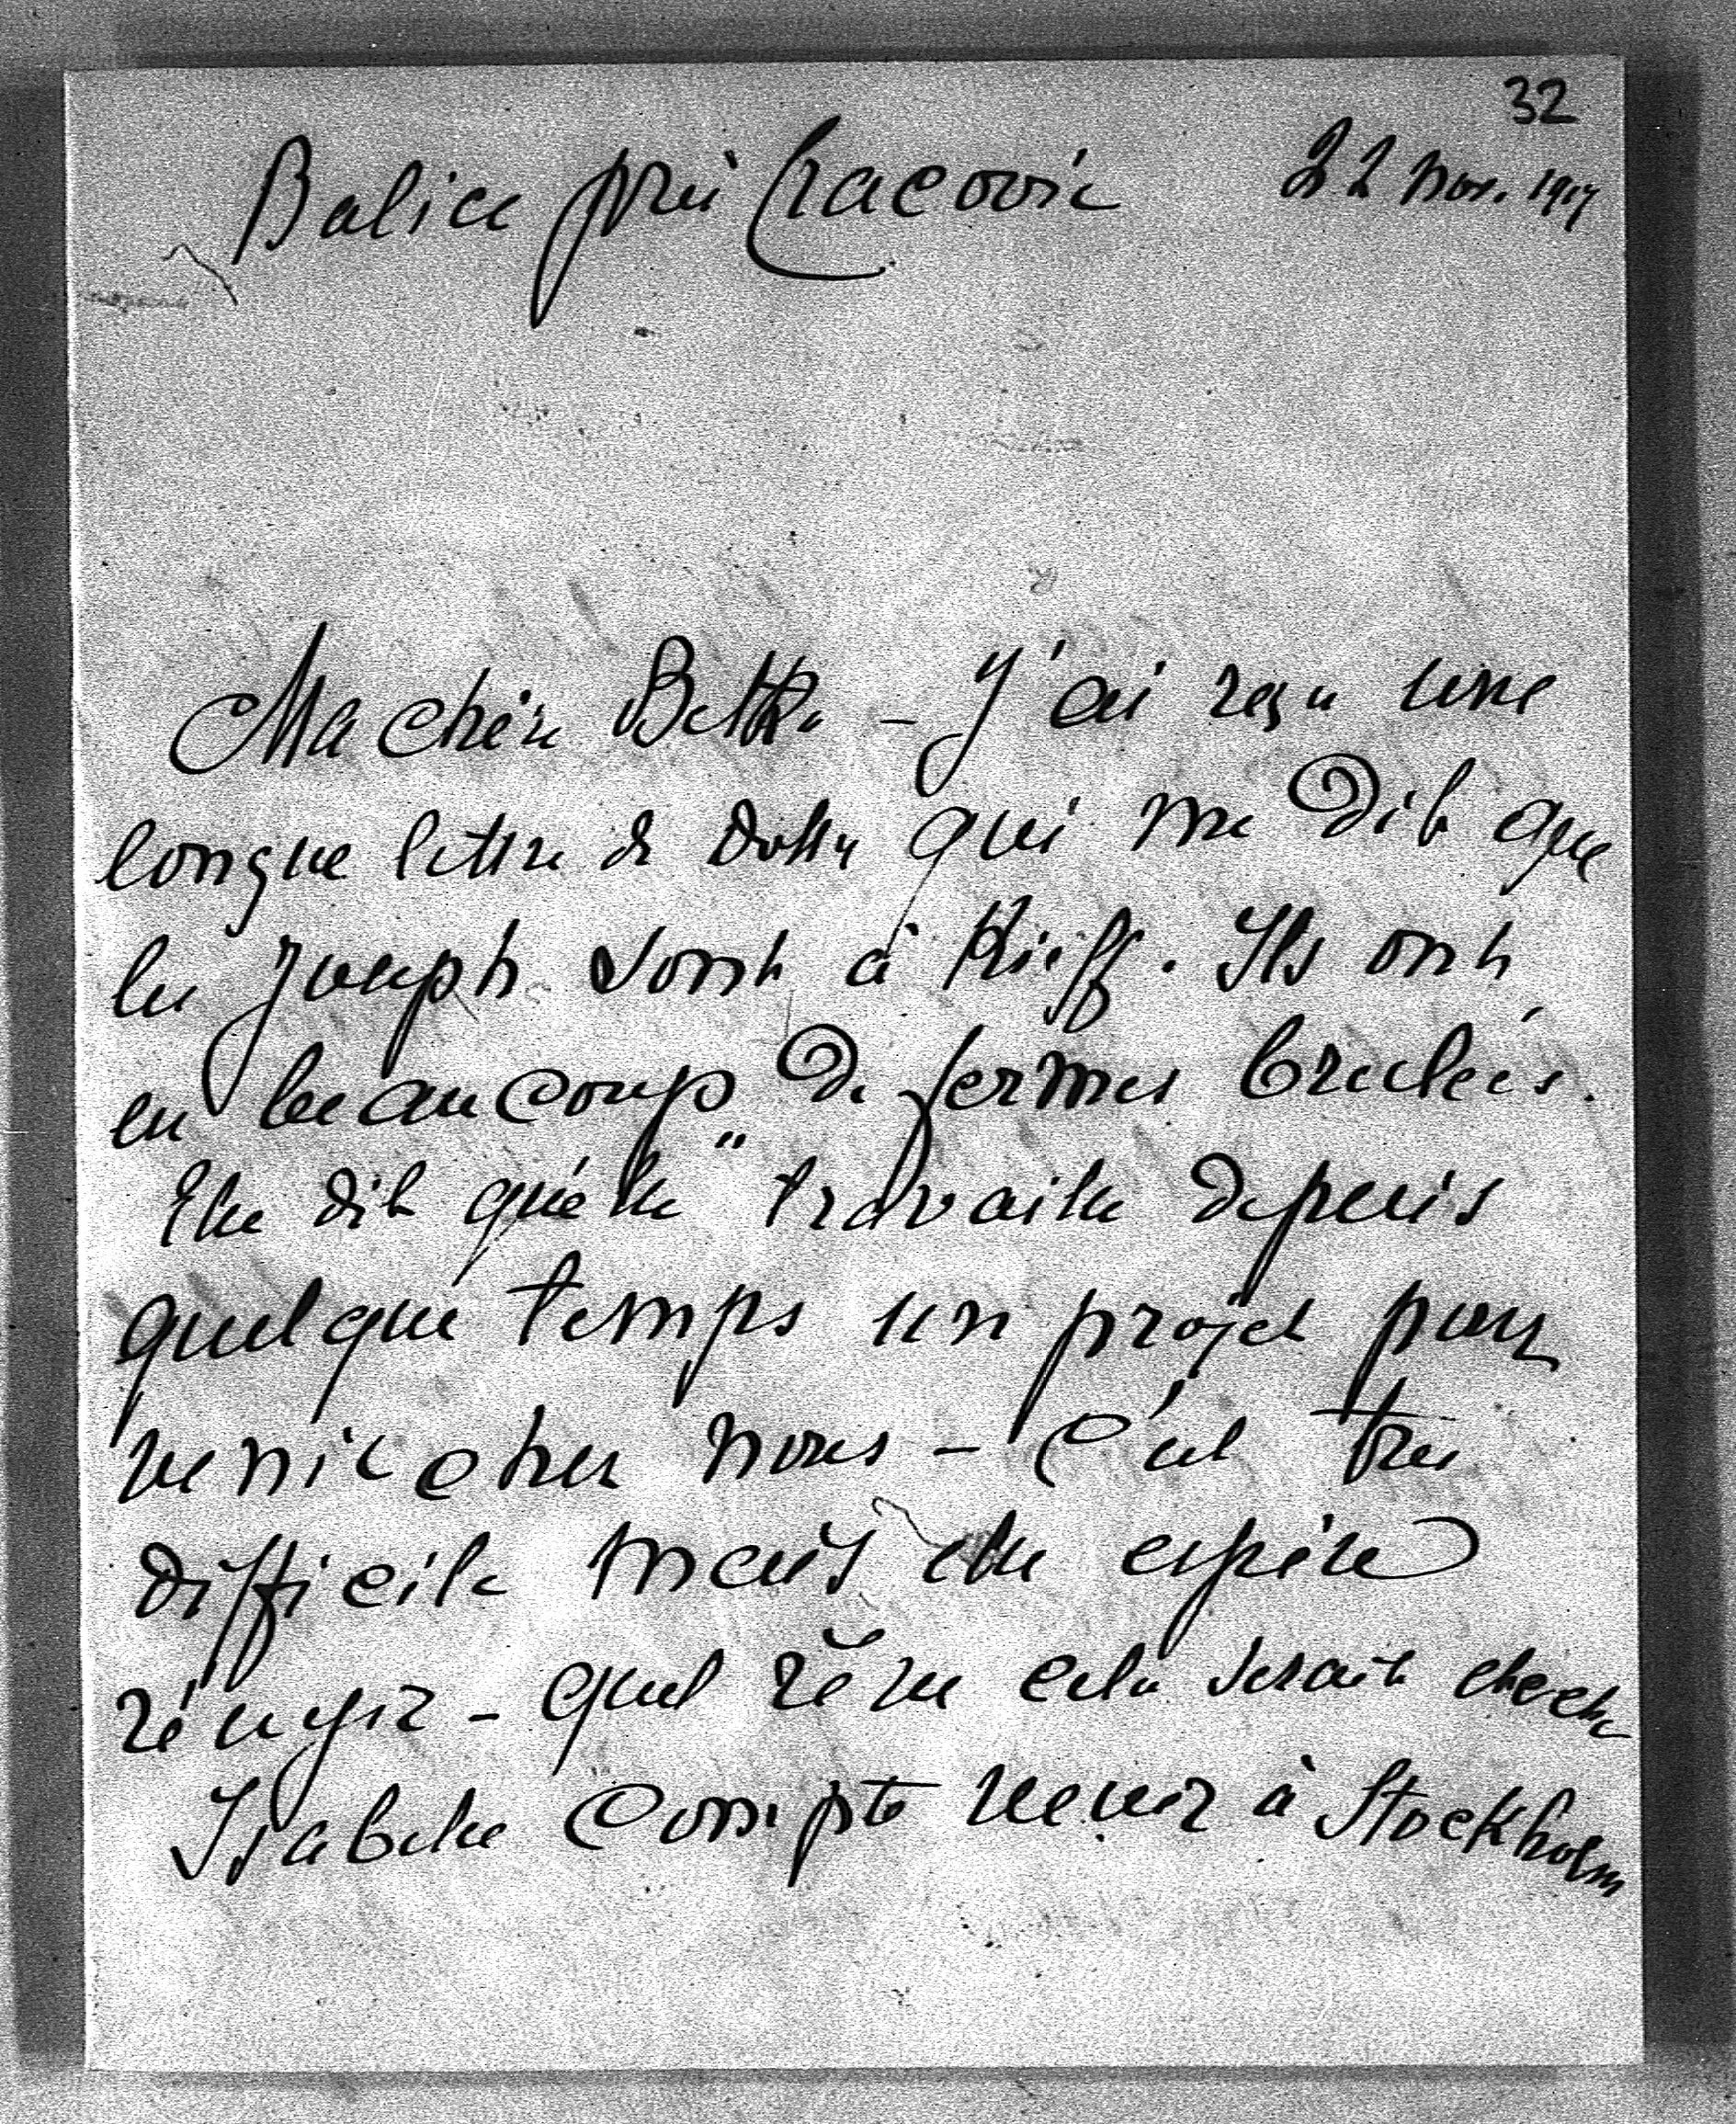 32
Balice près Cracovie 22 Nov. 1917
Ma chère Betka – J'ai reçu une
longue lettre de Dolly qui me dit que
les Joseph sont à Kieff. Ils ont
eu beaucoup de fermes brulées.
Elle dit qu'elle "travaille depuis
quelque temps un projet pour
venir chez nous – c'est très
difficile mais elle espère
réussir – quel rêve cela serait
Isabelle compte venir à Stockholm